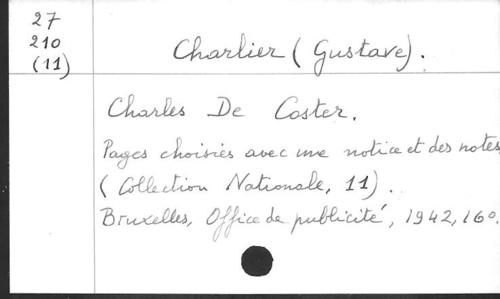 27
210
(11)
Charlier (Gustave).
Charles De Coster.
Pages choisies avec une notice et des notes
(Collection Nationale, 11).
Bruxelles, Office de publicité, 1942, 16°.